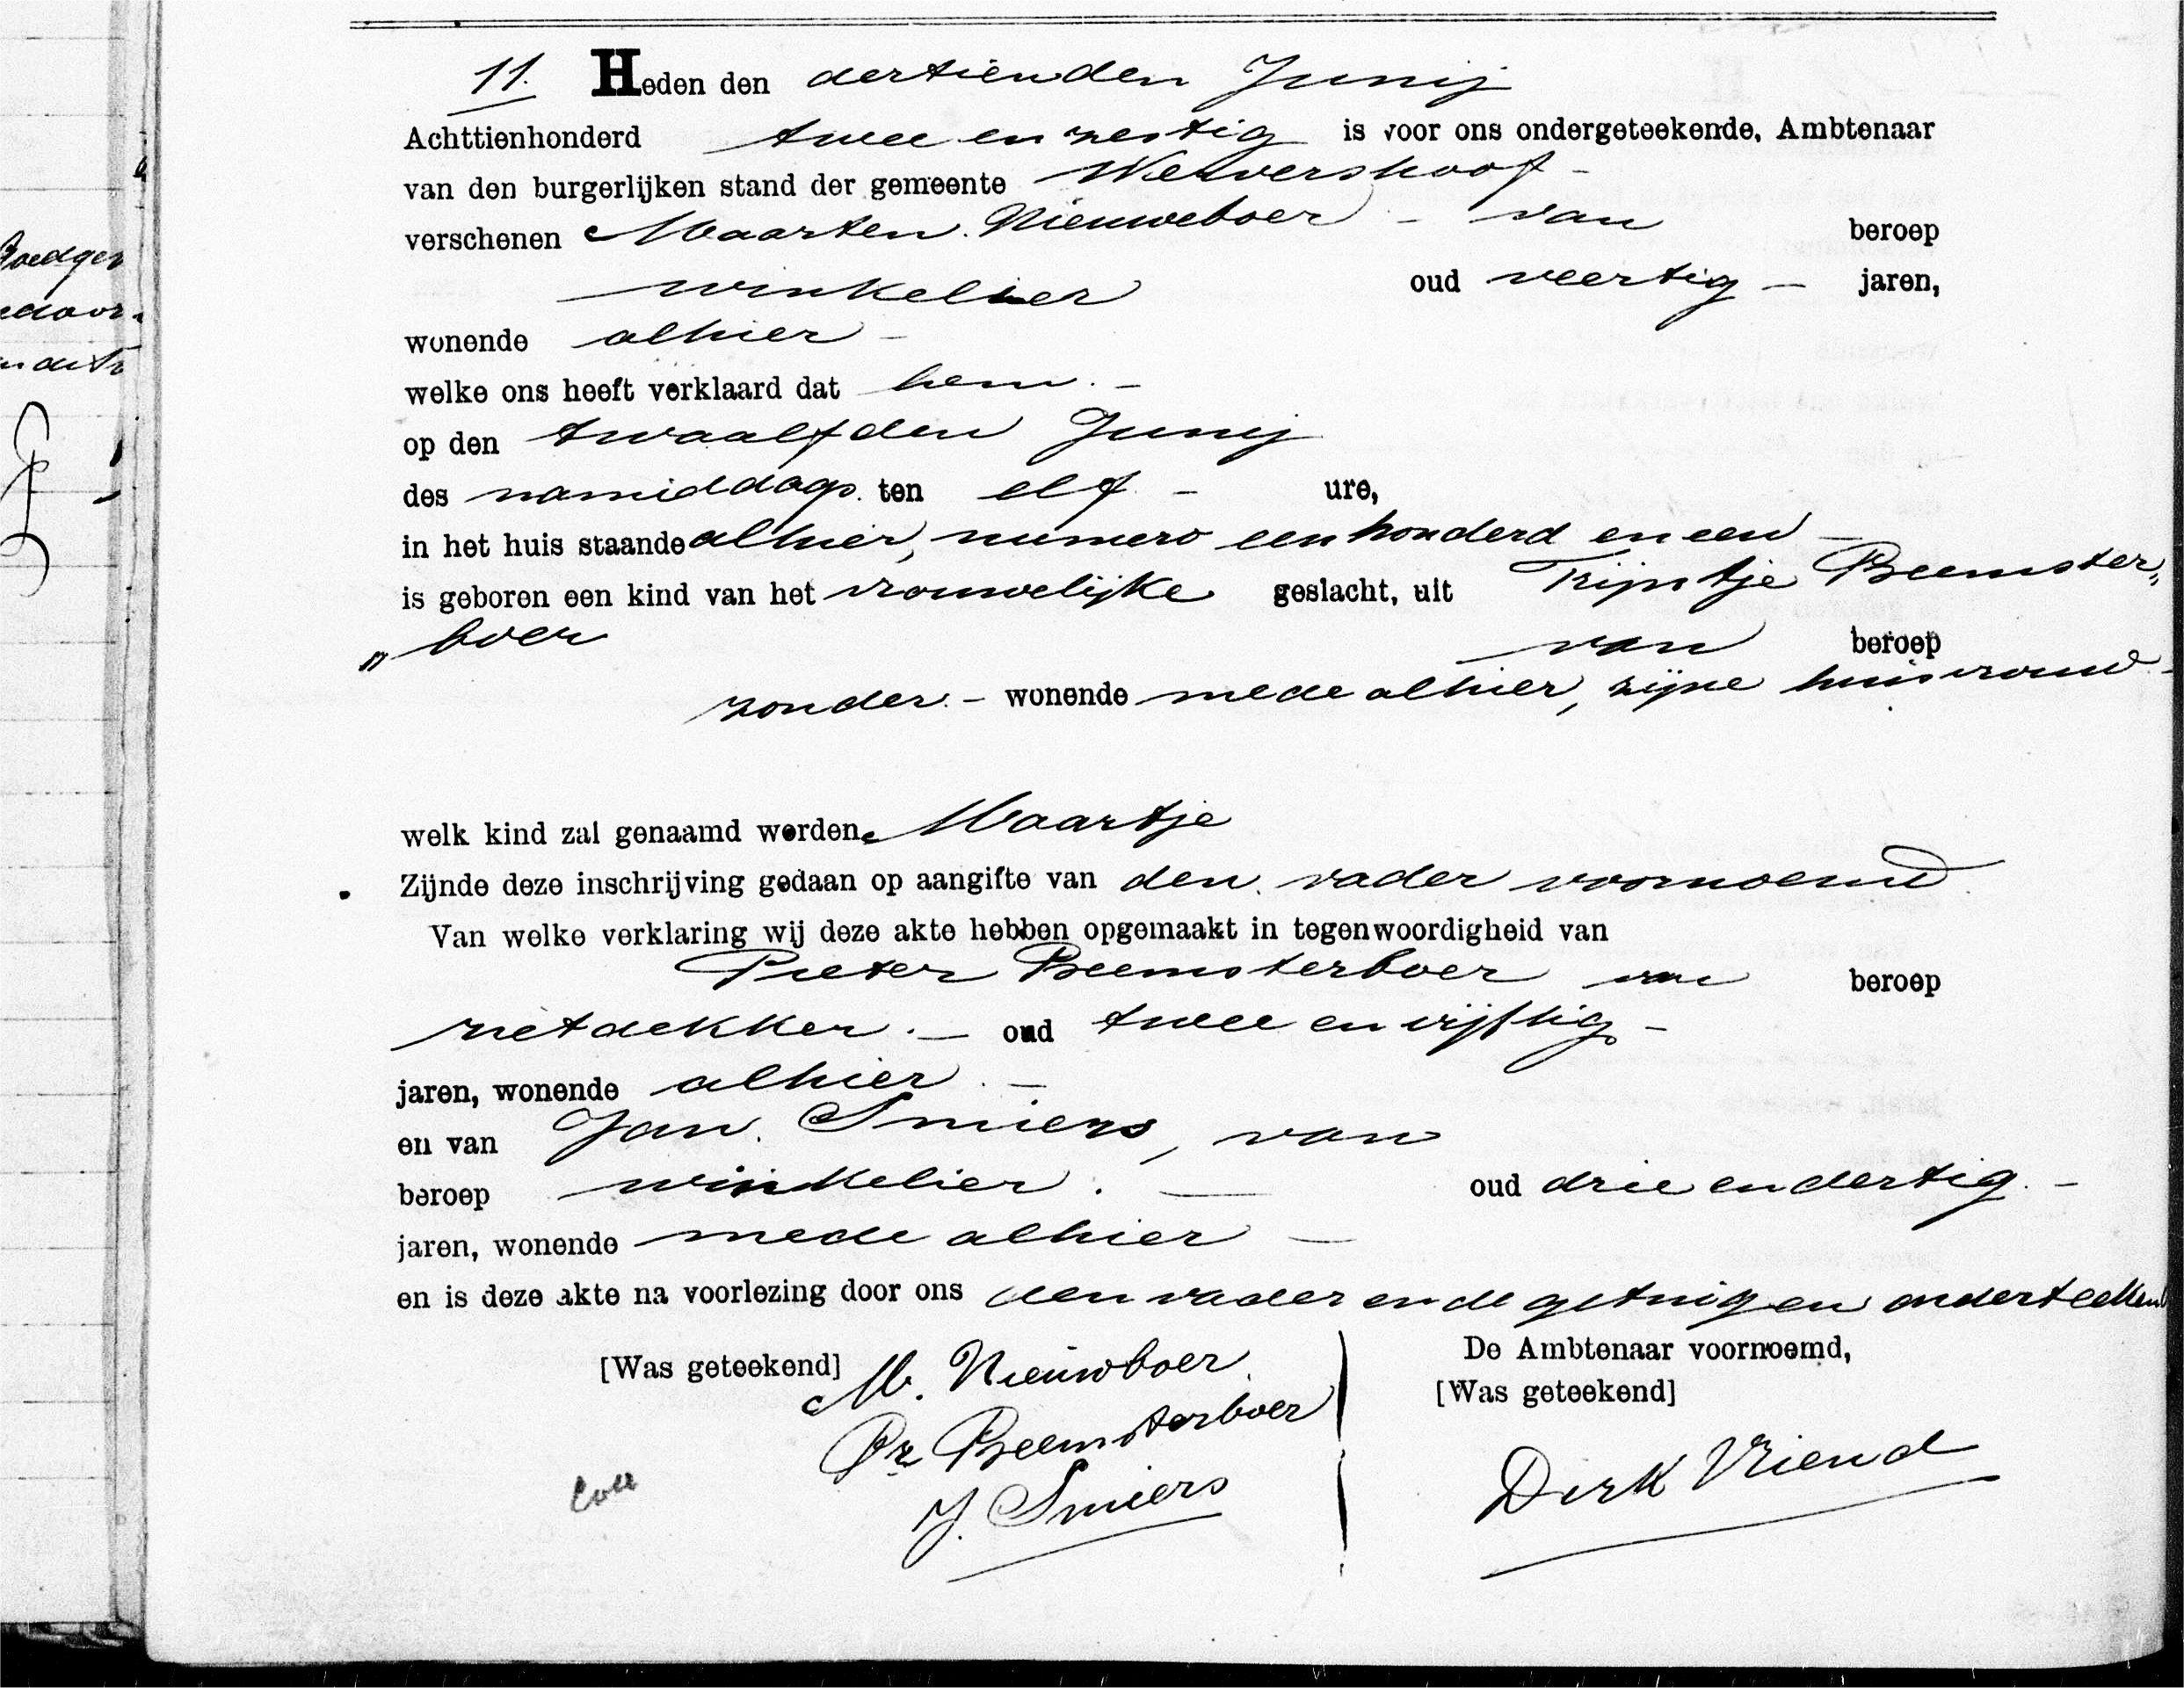 11. Heden den dertienden Junij
Achttienhonderd twee en zestig is voor ons ondergeteekende, Ambtenaar
van den burgerlijken stand der gemeente Wervershoof -
verschenen Maarten Nieuweboer - van beroep
winkelier oud veertig - jaren,
wonende alhier -
welke ons heeft verklaard dat hem. -
op den twaalfden Junij
des namiddags ten elf - ure,
in het huis staande alhier, numero een honderd en een -
is geboren een kind van het vrouwelijke geslacht, uit Trijntje Beemster„
„boer van beroep
zonder. - wonende mede alhier, zijne huisvrouw -
welk kind zal genaamd worden Maartje
Zijnde deze inschrijving gedaan op aangifte van den vader voornoemd.
Van welke verklaring wij deze akte hebben opgemaakt in tegenwoordigheid van
Pieter Beemsterboer van beroep
rietdekker. - oud twee en vijftig -
jaren, wonende alhier. -
en van Jan Smiers, van
beroep winkelier. - oud drie en dertig. -
jaren, wonende mede alhier -
en is deze akte na voorlezing door ons den vader en de getuigen onderteekend
[Was geteekend] M. Nieuwboer
Pr Beemsterboer
J. Smiers
De Ambtenaar voornoemd,
[Was geteekend]
Dirk Vriend